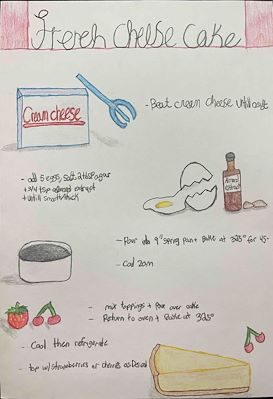 French Cheese Cake
Cream cheese
- Beat cream cheese until soft
- add 5 eggs, salt 2
+ 3/4 tsp almond extract
+ until smooth/thick
extract
- Pour 9" spring pan + Bake at 325° for 45-
- Cool 20m
- mix toppings + Pour over cake
- Return to oven + Bake at 325°
- Cool then refrigerate
- top w/ strawberries or cherries as Desired